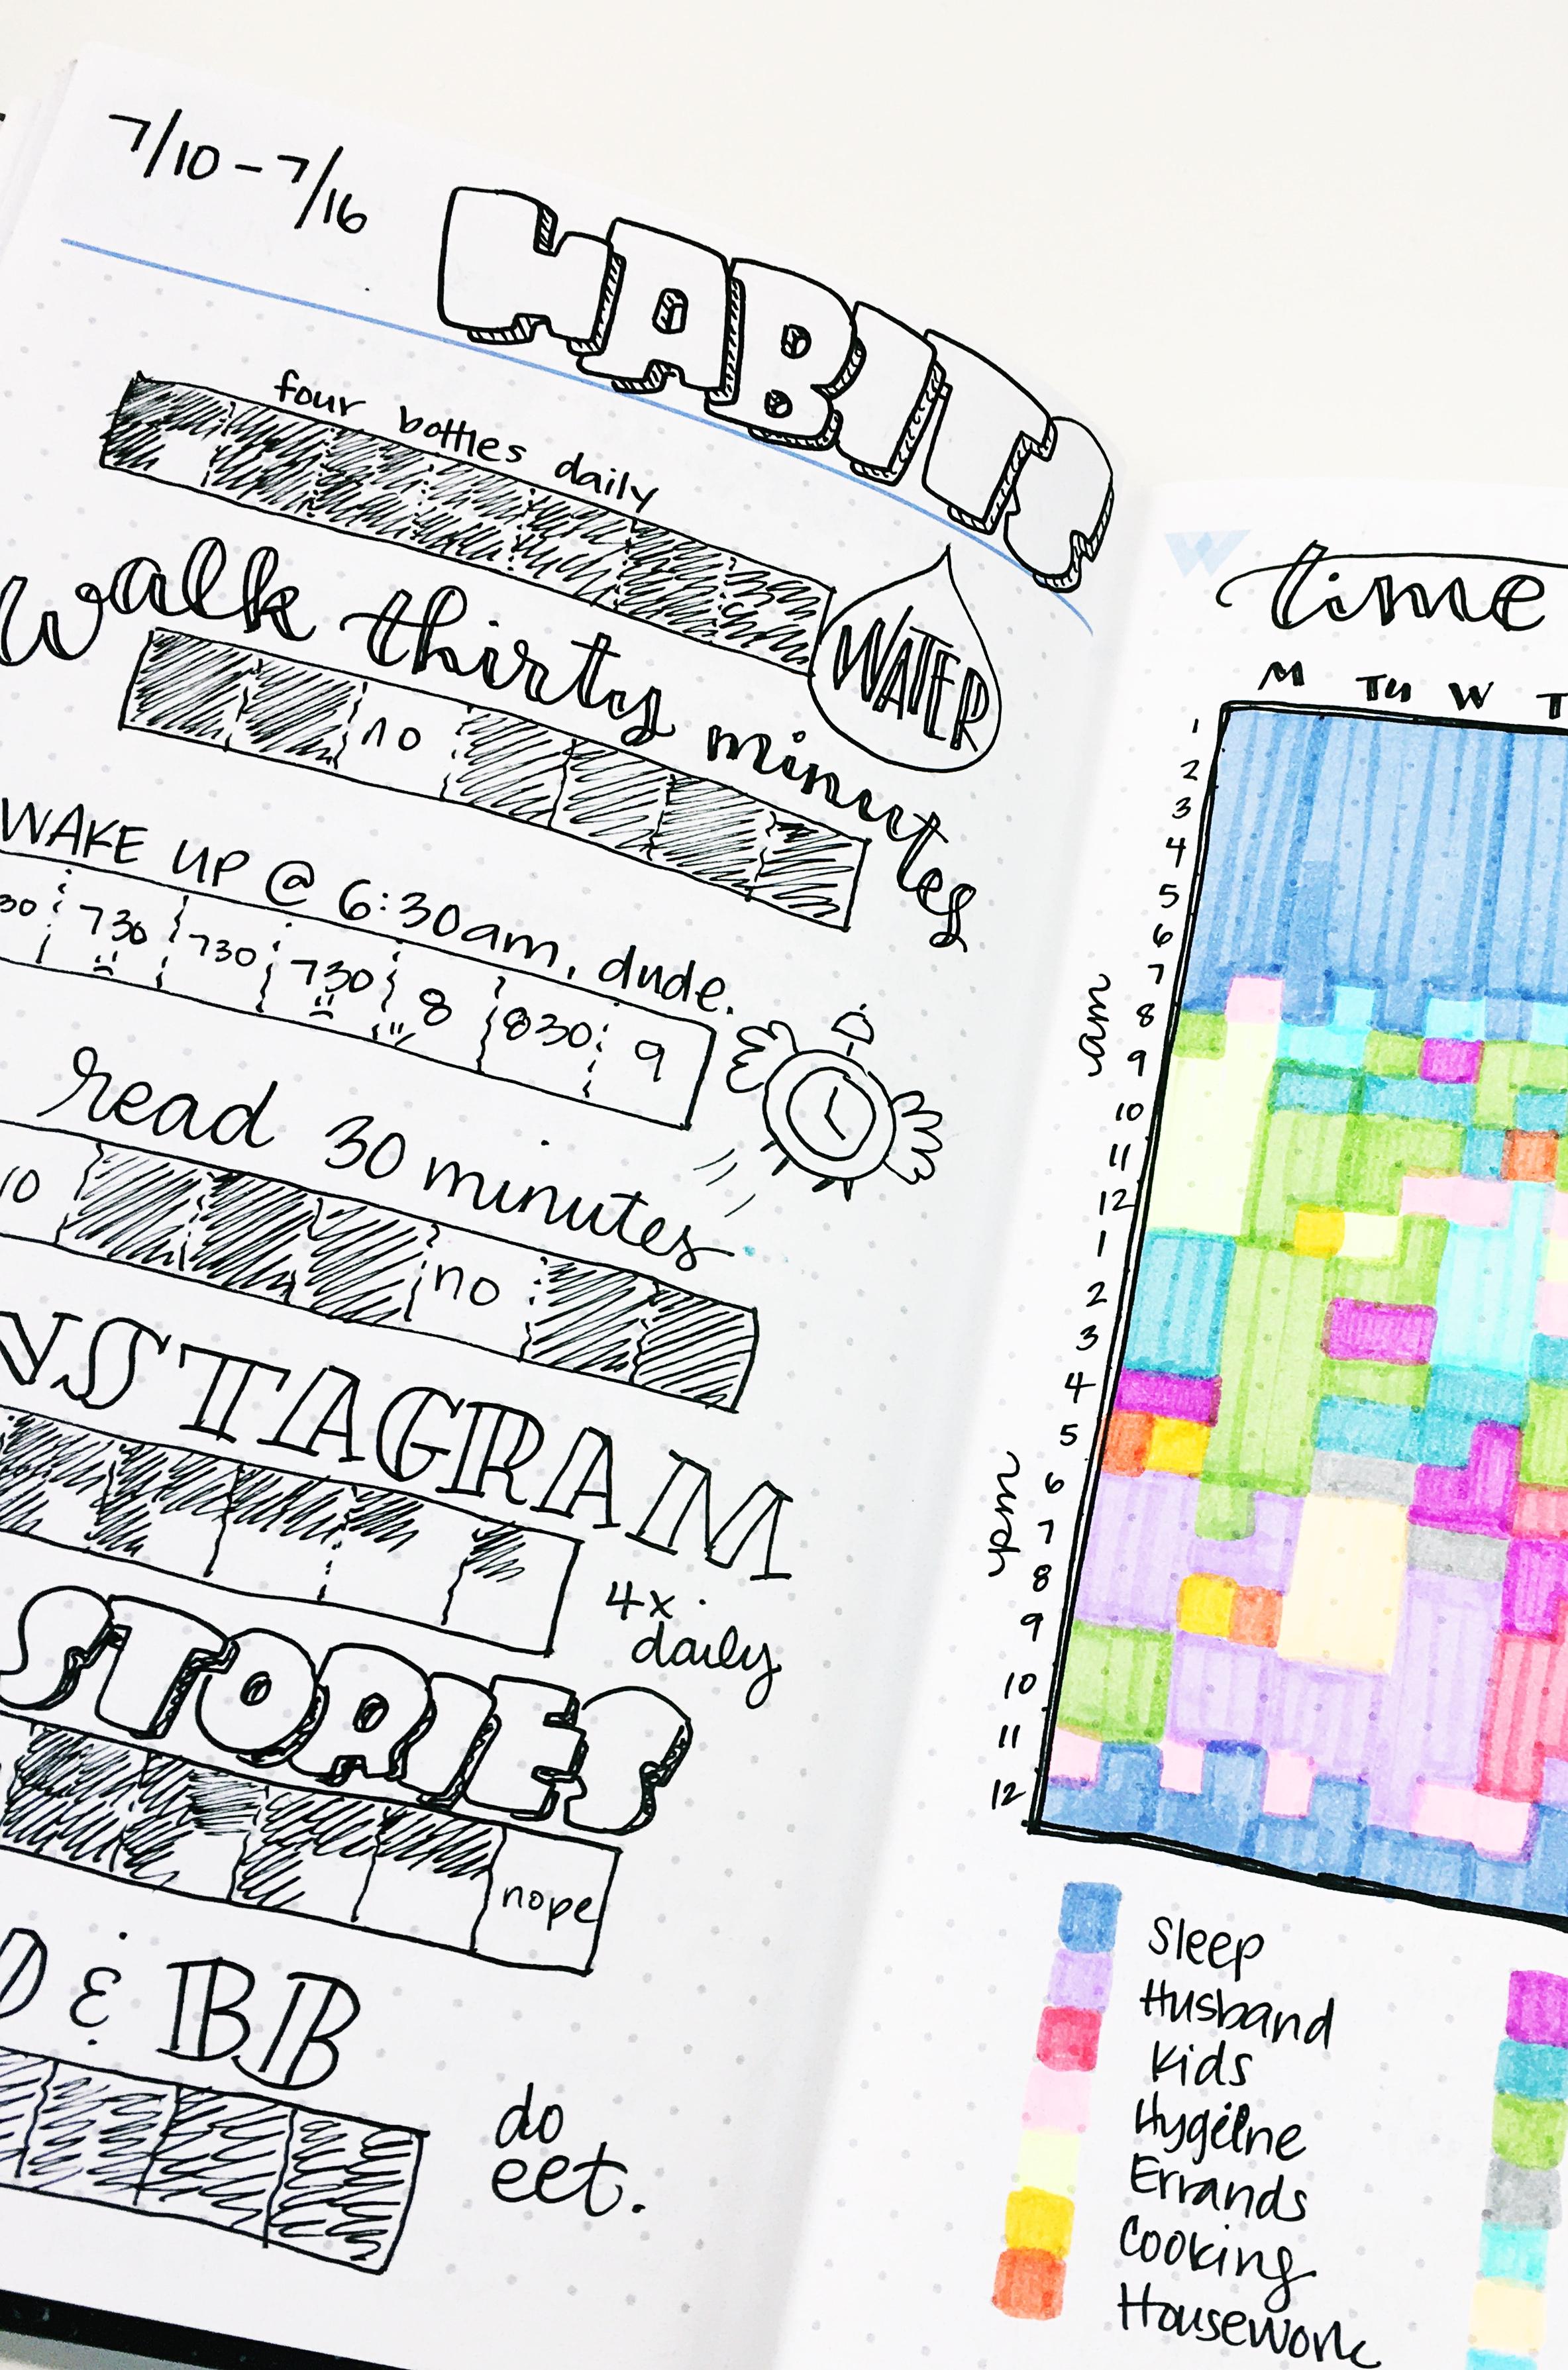 7/10 - 7/16
HABITS
four bottles daily
WATER
Walk thirty minutes
no
WAKE UP @ 6:30am, dude.
30 730 730 730 8 830 9
read 30 minutes
no
NSTAGRAM
4x daily
STORIES
nope
& BB
do
eet.
time
M Tu W T
1
2
3
4
5
6
7
am 8
9
10
11
12
1
2
3
4
5
pm 6
7
8
9
10
11
12
Sleep
Husband
Kids
Hygeine
Errands
Cooking
Housework